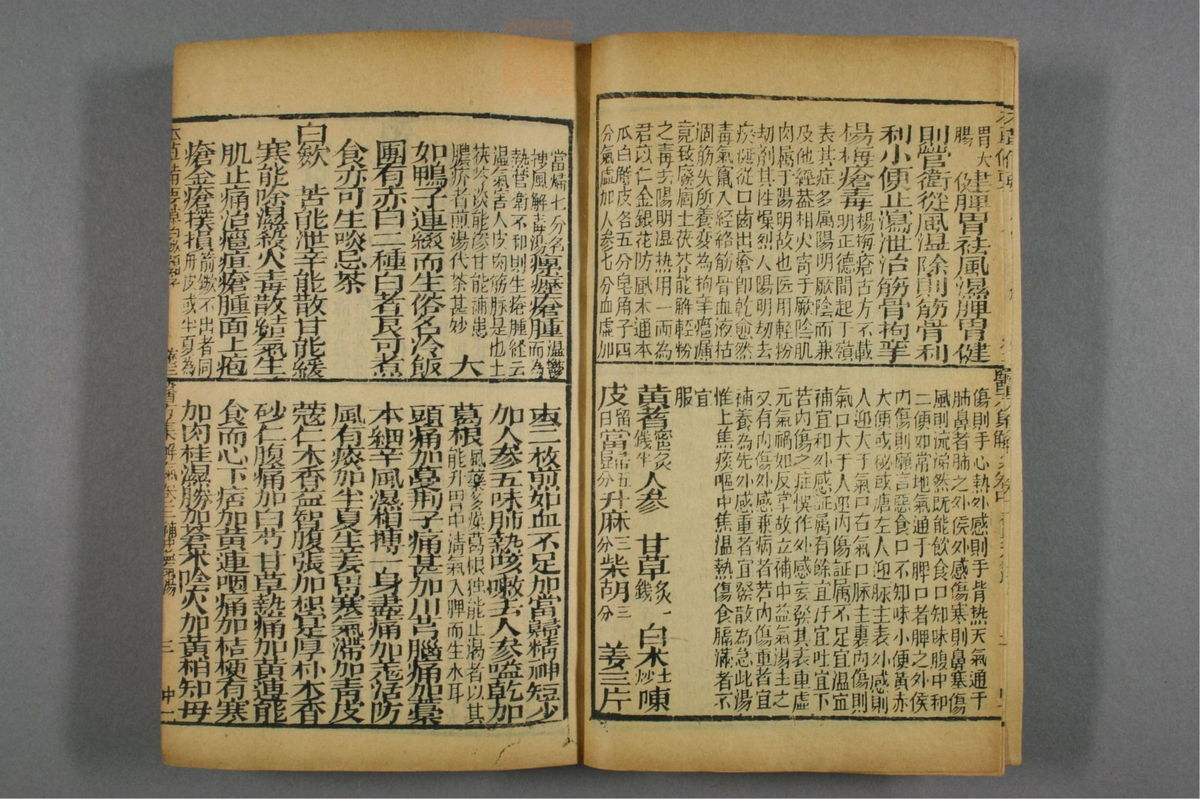 胃大腸 健脾胃祛風濕脾胃健
則營衛從風濕除則筋骨利
利小便止瀉泄治筋骨拘攣
楊梅瘡毒 楊梅瘡古方不載
明正德間起于嶺
表其症多属陽明厥陰而兼
及他經葢相火寄于厥陰肌
肉属于陽明故也医用輕粉
刼劑其性燥烈入陽明刼去
痰涎從口齒出瘡卽乾愈然
毒氣竄入經絡筋骨血液枯
涸筋失所養变為拘挛癰漏
竟致廢痼土茯苓能解輕粉
之毒去陽明湿热用一両為
君苡仁金銀花防風木通木
瓜白蘚皮各五分皂角子四
分氣虛加人參七分血虛加
傷則手心熱外感則手背热天氣通于
肺鼻者肺之外侯外感傷寒則鼻塞傷
風則流涕然既能飲食口知味腹中和
二便如常地氣通于脾口者脾之外侯
内傷則懶言惡食口不知味小便黃赤
大便或秘或溏左人迎脉主表外感則
人迎大于氣口右氣口脉主裏内傷則
氣口大于人迎内傷証属不足宜温宜
補宜和外感証属有餘宜汗宜吐宜下
苦内傷之症悞作外感妄發其表重虛
元氣禍如反掌故立補中益氣湯主之
又有内傷外感兼病者若内傷重者宜
補養為先外感重者宜發散為急此湯
惟上焦痰嘔中焦溫熱傷食膈滿者不
宜
服
黃耆蜜炙錢半 人參 甘草炙一錢 白朮土炒 陳
皮留白 當歸五分 升麻三分 柴胡三分 姜三片
當歸七分名
搜風解毒湯 瘰癧瘡腫 濕鬱而為
熱營衛不和則生瘡腫経云
濕氣害人皮肉筋脉是也土
茯苓淡能滲甘能補患
膿疥者煎湯代茶甚妙 大
如鴨子連綴而生俗名冷飯
團有赤白二種白者良可煮
食亦可生啖忌茶
白蘞 苦能泄辛能散甘能緩
寒能除濕殺火毒散結氣生
肌止痛治癰疽瘡腫面上皰
瘡金瘡撲損 箭鏃不出者同
丹皮或半夏為
枣二枚煎如血不足加當歸精神短少
加人參五味肺熱咳嗽去人參嗌乾加
葛根 風藥多燥葛根独能止渴者以其
能升胃中清氣入脾而生水耳
頭痛加蔓荆子痛甚加川芎腦痛加藁
本細辛風濕相搏一身盡痛加羌活防
風有痰加半夏生姜胃寒氣滞加青皮
蔻仁木香益智腹脹加枳实厚朴木香
砂仁腹痛加白芍甘草熱痛加黃連能
食而心下痞加黃連咽痛加桔梗有寒
加肉桂濕勝加蒼朮陰火加黃柏知母